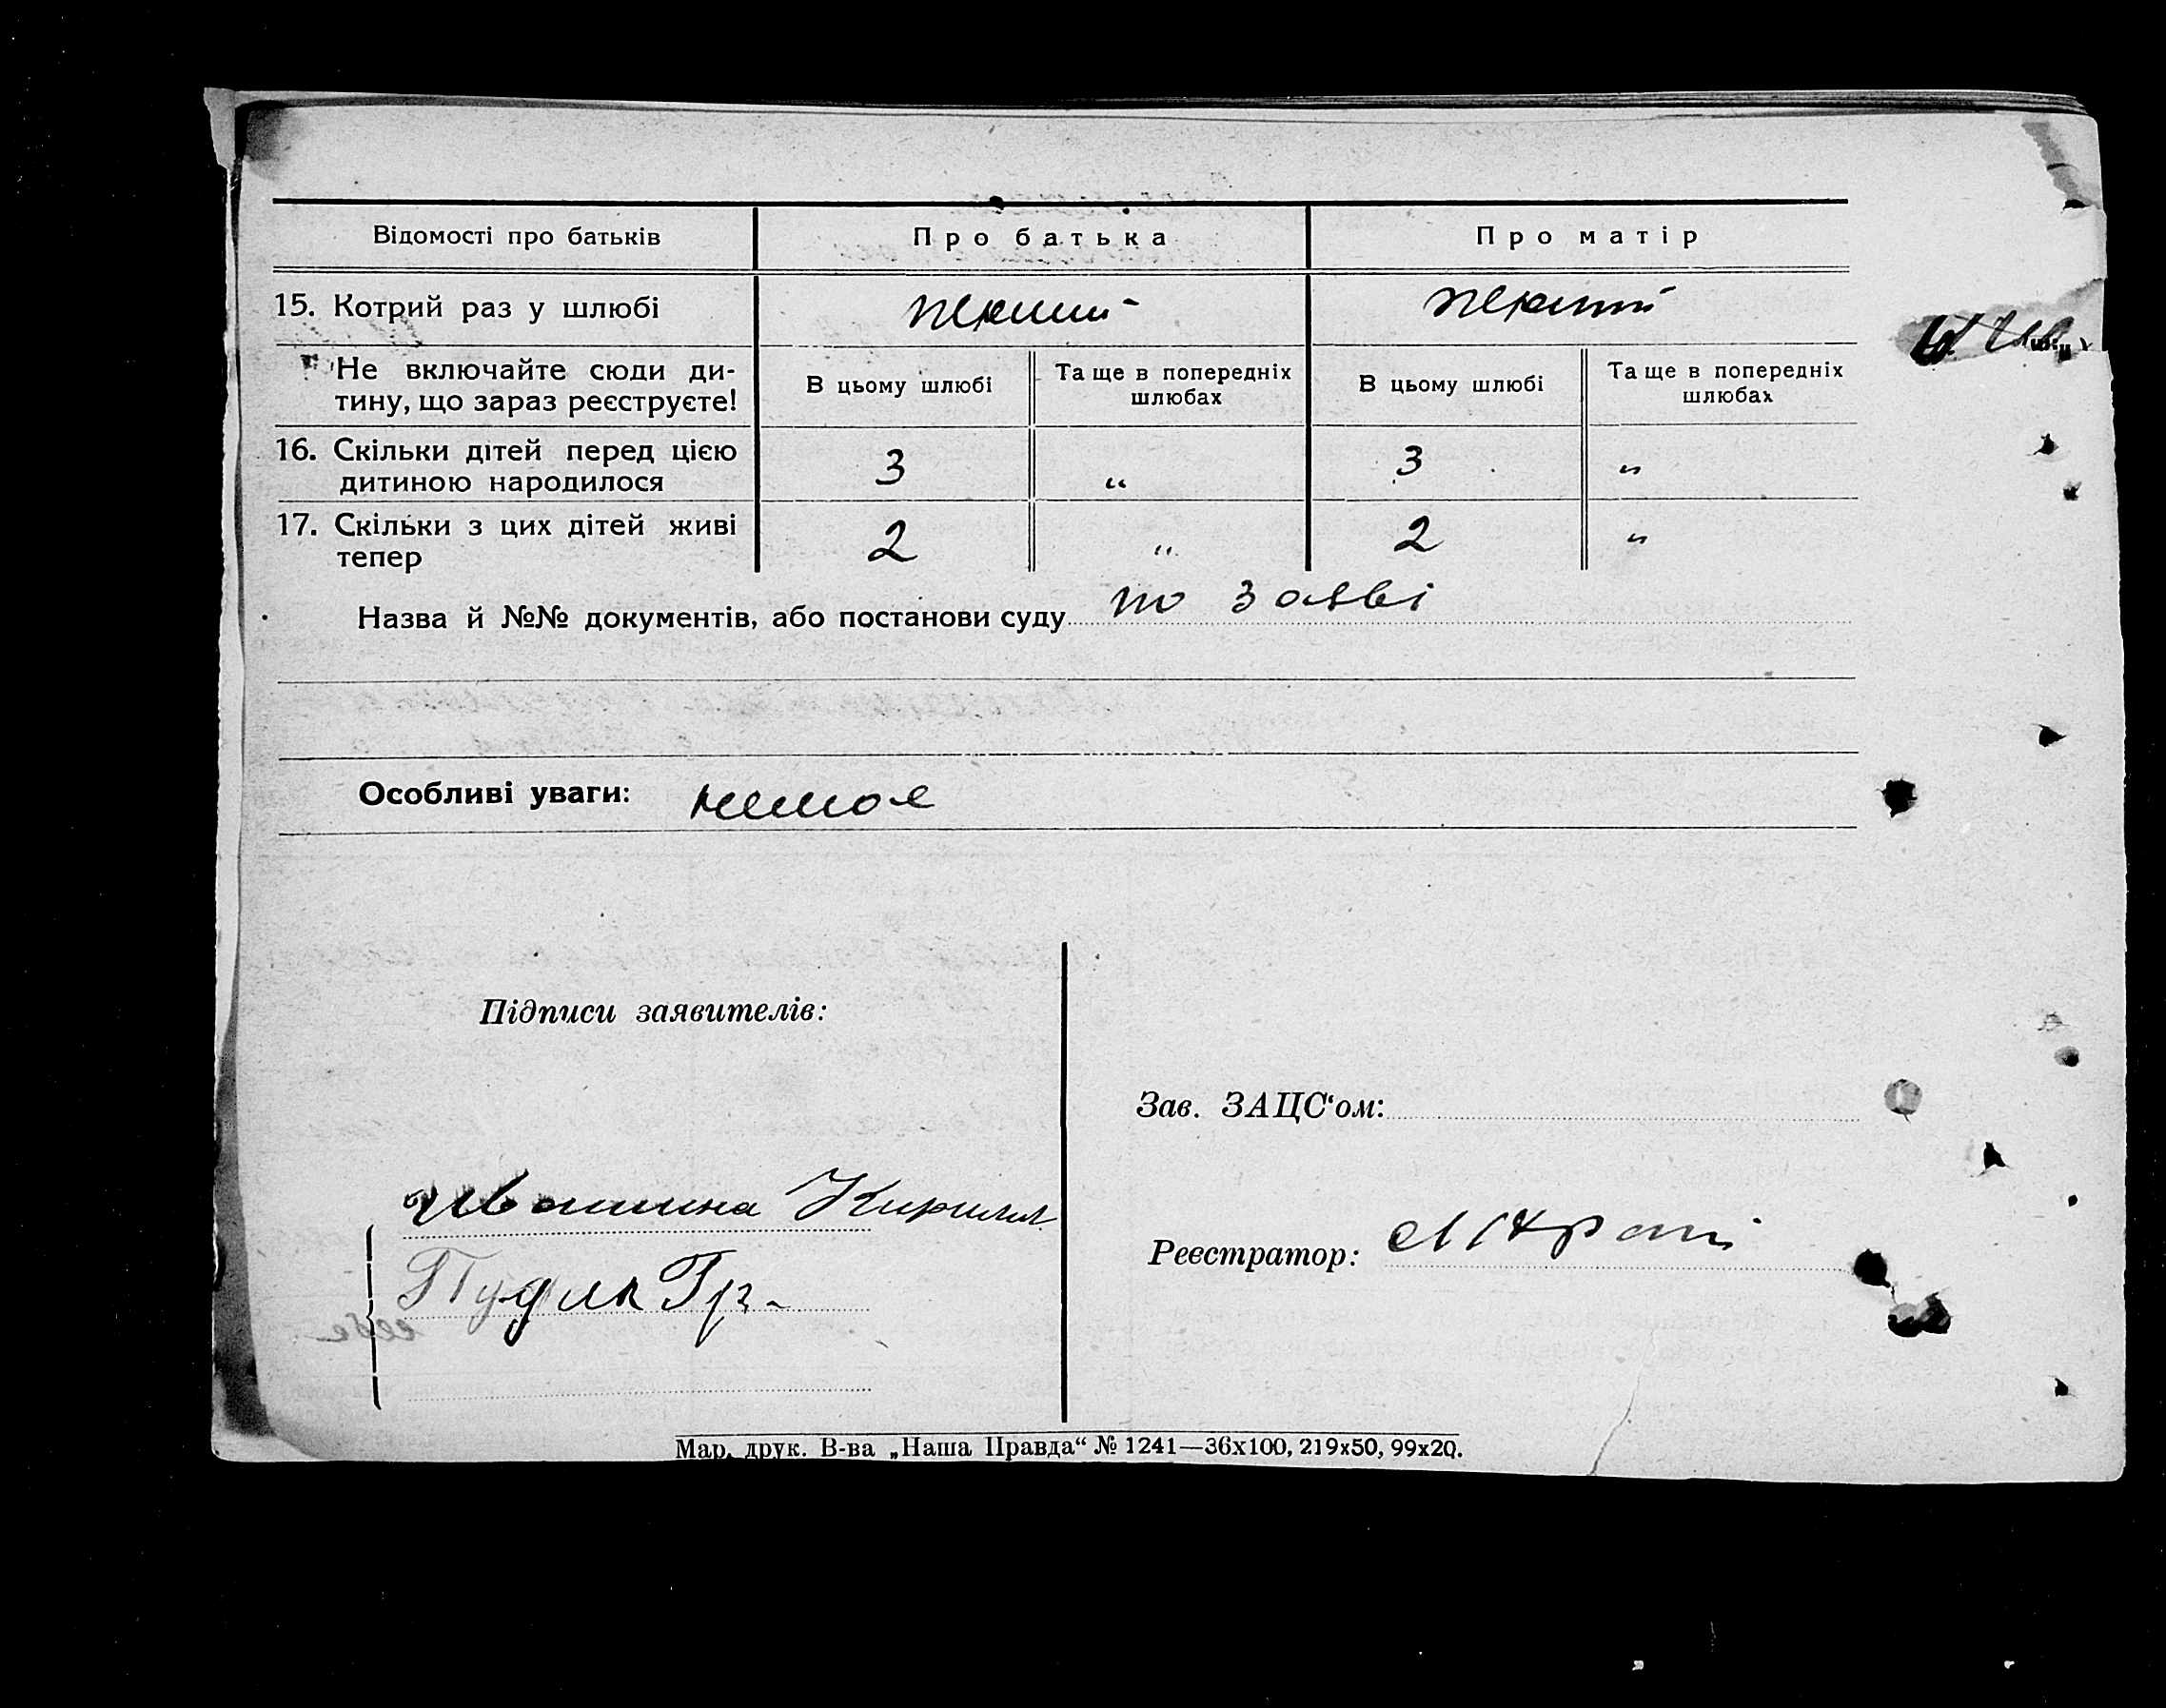 Відомості про батьків Про батька Про матір
15. Котрий раз у шлюбі перший перший
Не включайте сюди ди-
тину, що зараз реєструєте!
В цьому шлюбі Та ще в попередніх шлюбах В цьому шлюбі Та ще в попередніх шлюбах
16. Скільки дітей перед цією
дитиною народилося 3 „ 3 „
17. Скільки з цих дітей живі
тепер 2 „ 2 „
Назва й №№ документів, або постанови суду по заяві
Особливі уваги: немає
Підписи заявителів:
Зав. ЗАЦС‘ом:
Ивашина Кирилл
Реєстратор:
Гр.
Мар. друк. В-ва „Наша Правда“ № 1241—36х100, 219х50, 99х20.